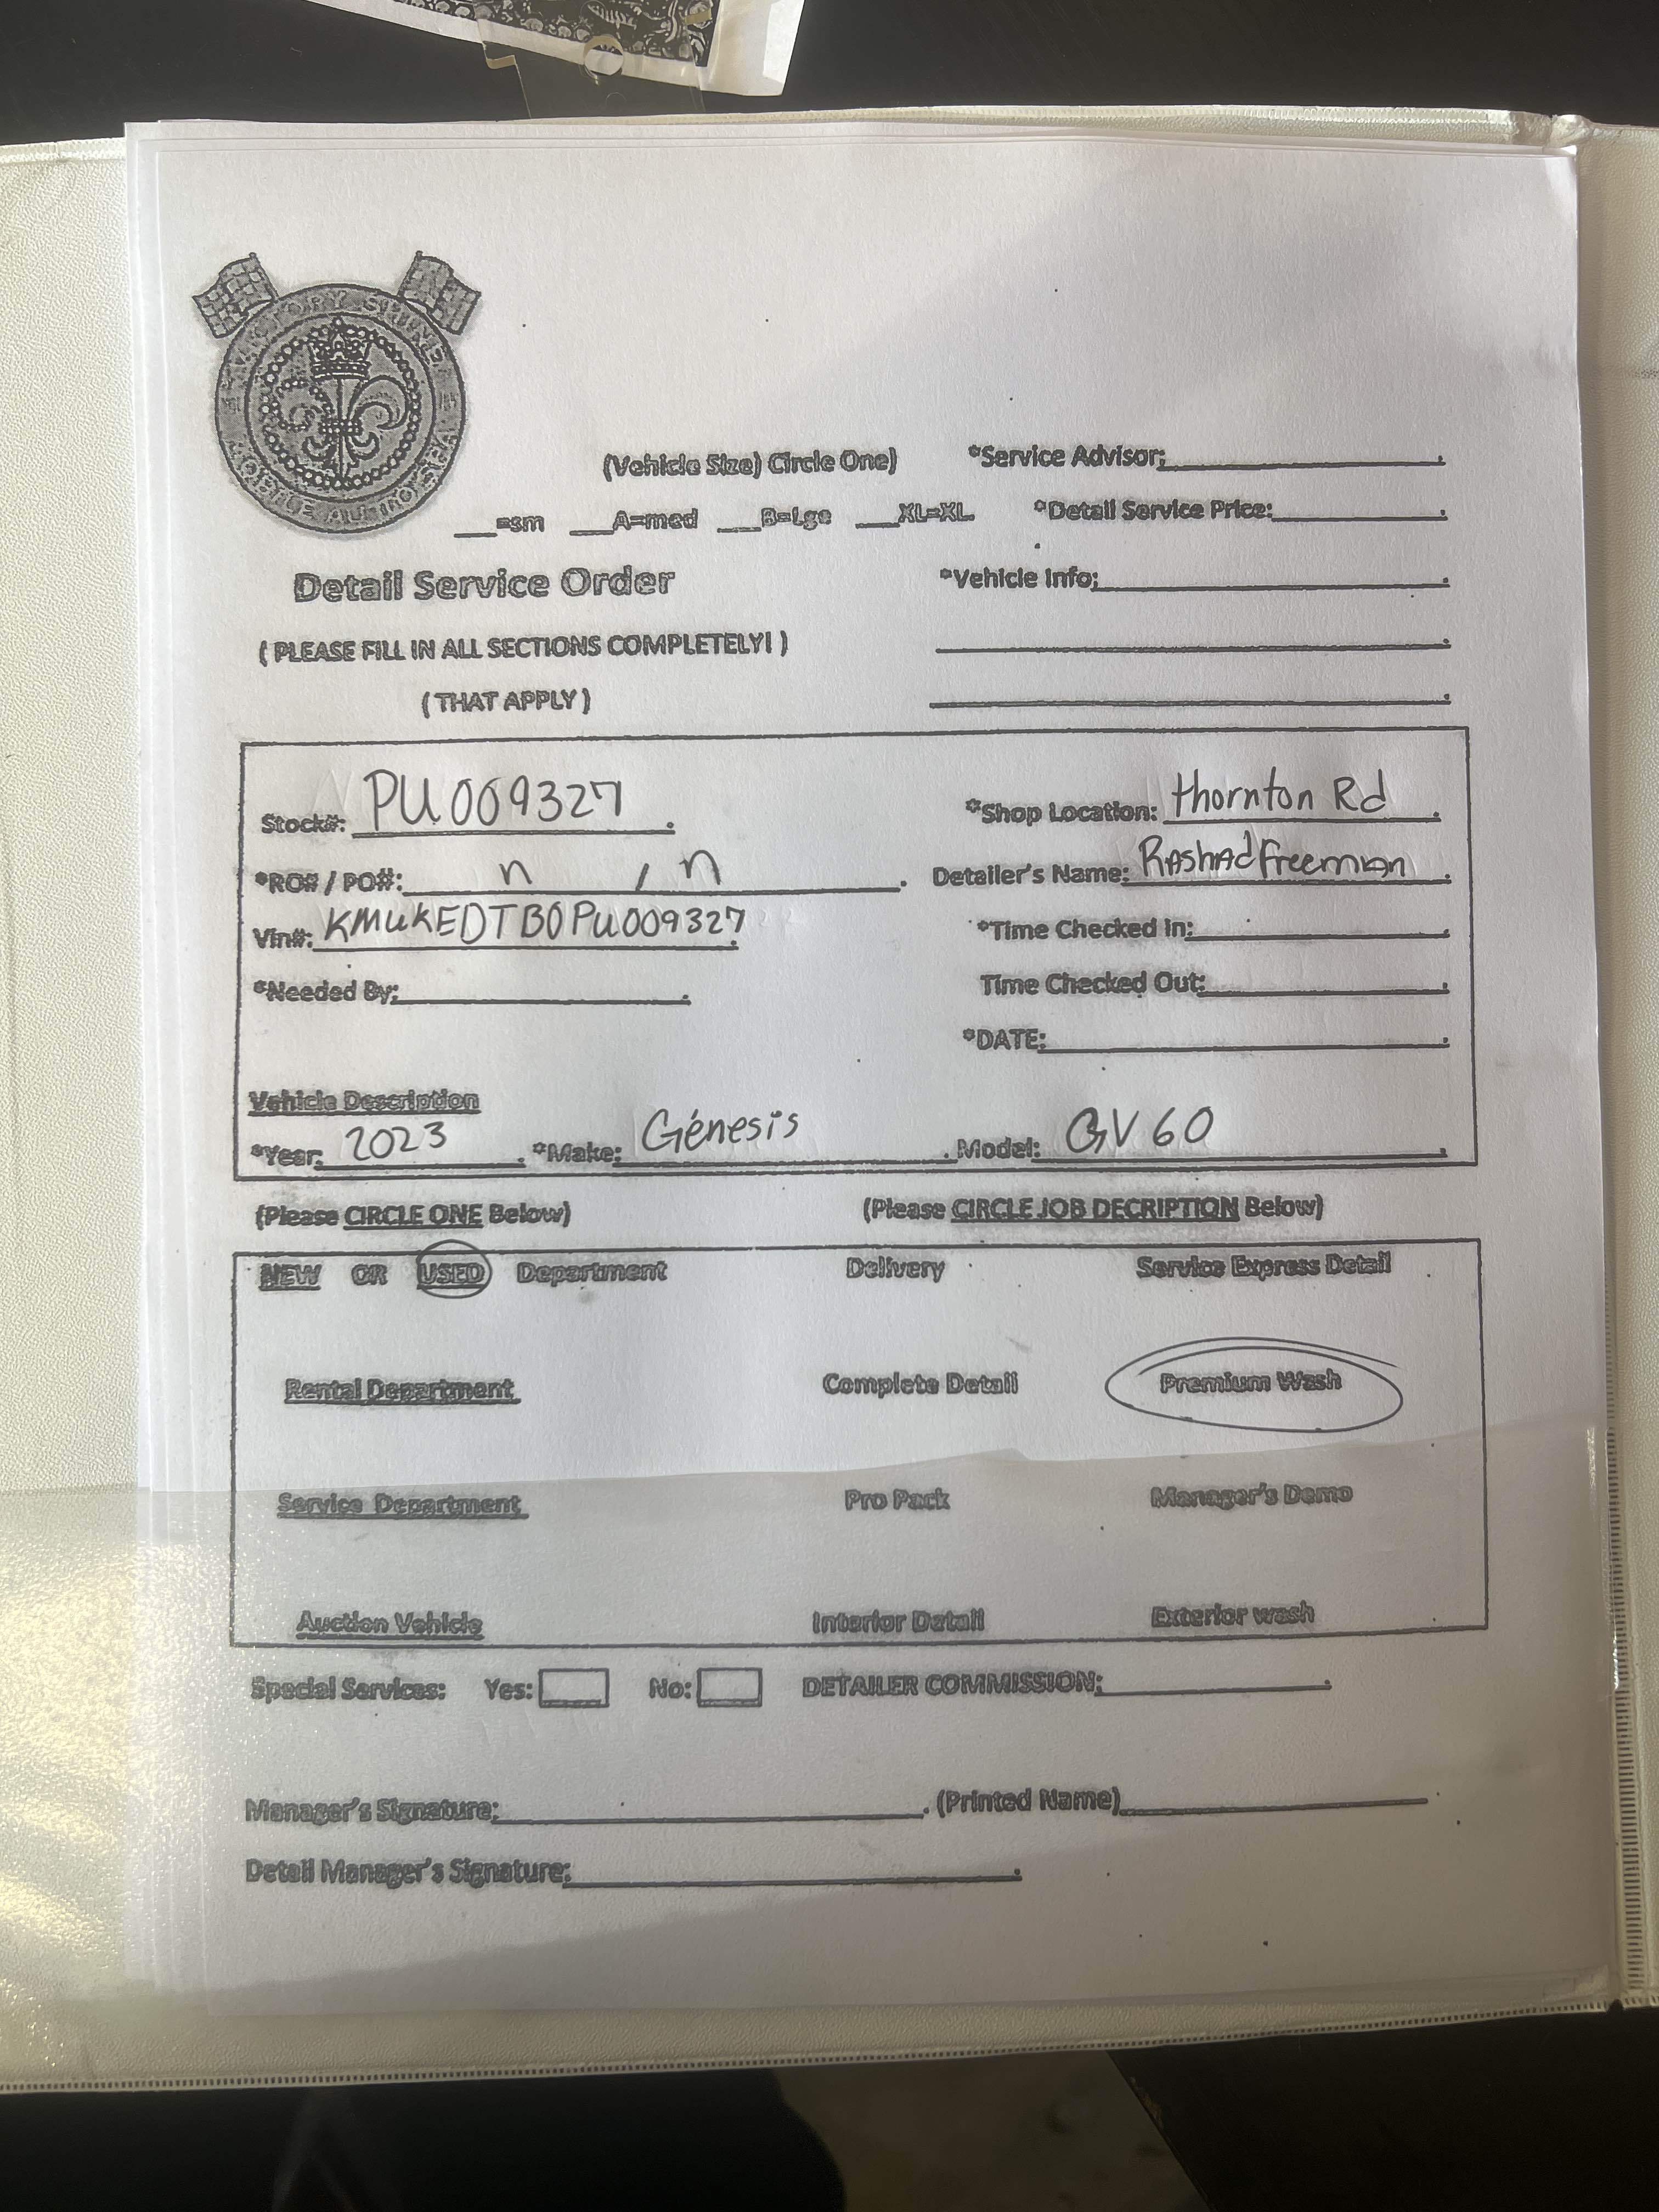 VICTORY SHINE
MOBILE AUTO SPA
(Vehicle Size) Circle One)
*Service Advisor:____________.
___=sm ___A=med ___B=Lge ___XL=XL
*Detail Service Price:____________.
Detail Service Order
*Vehicle Info:____________.
( PLEASE FILL IN ALL SECTIONS COMPLETELY! )
( THAT APPLY )
Stock#: PU009327.
*Shop Location: thornton Rd.
*RO# / PO#: n / n.
Detailer's Name: RAshAd freeman.
Vin#: KMUKEDTB0PU009327.
*Time Checked In:____________.
*Needed By:____________.
Time Checked Out:____________.
*DATE:____________.
Vehicle Description
*Year: 2023. *Make: Génesis. Model: GV60.
(Please CIRCLE ONE Below)
(Please CIRCLE JOB DECRIPTION Below)
NEW OR USED Department Delivery Service Express Detail
Rental Department Complete Detail Premium Wash
Service Department Pro Pack Manager's Demo
Auction Vehicle Interior Detail Exterior wash
Special Services: Yes: No: DETAILER COMMISSION:____________.
Manager's Signature:____________. (Printed Name)____________
Detail Manager's Signature:____________.